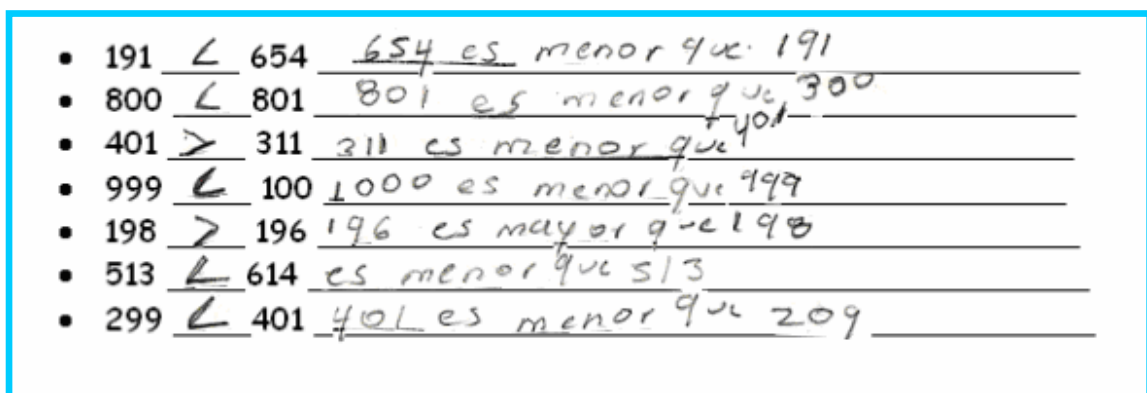 • 191 < 654 654 es menor que 191
• 800 < 801 801 es menor que 300
• 401 > 311 311 es menor que 401
• 999 < 100 1000 es menor que 999
• 198 > 196 196 es mayor que 198
• 513 < 614 es menor que 513
• 299 < 401 401 es menor que 209